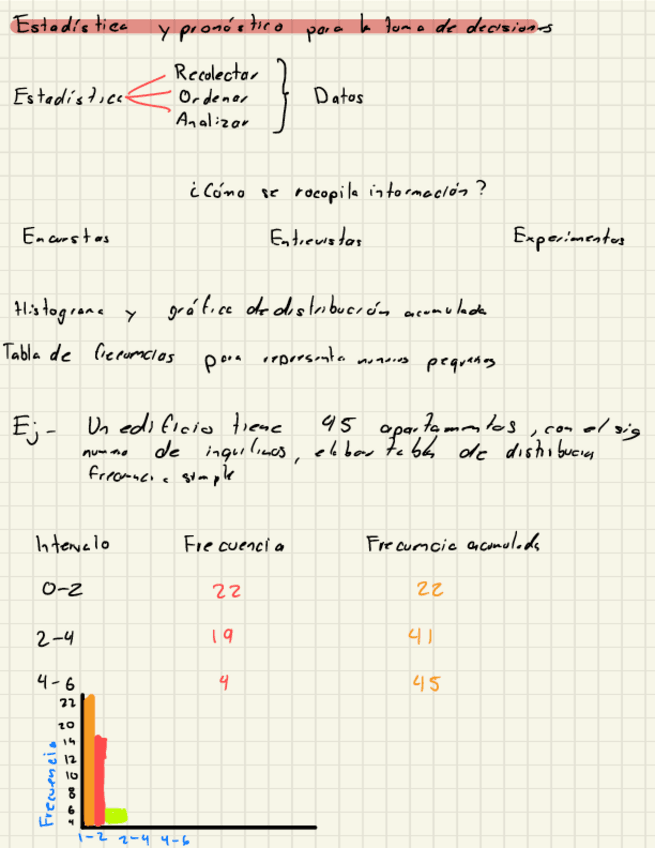 Estadística y pronóstico para la toma de decisiones
Recolectar
Estadística Ordenar Datos
Analizar
¿Cómo se recopila información?
Encuestas Entrevistas Experimentos
Histograma y gráfica de distribución acumulada
Tabla de frecuencias para representa numeros pequeños
Ej - Un edificio tiene 45 apartamentos, con el sig
numero de inquilinos, elabora tabla de distribucion
frecuencia simple
Intervalo Frecuencia Frecuencia acumulada
0-2 22 22
2-4 19 41
4-6 4 45
22
20
14
12
10
8
6
4
Frecuencia
1-2 2-4 4-6